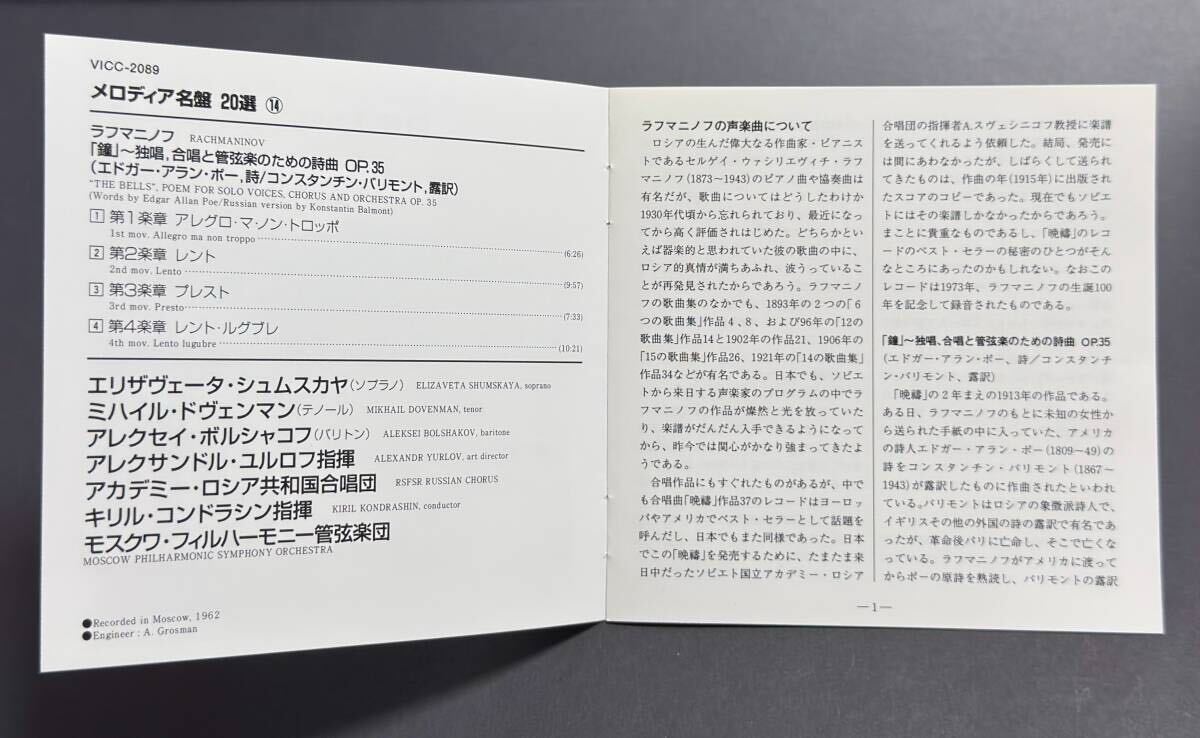 VICC-2089
メロディア名盤 20選 ⑭
ラフマニノフ RACHMANINOV
「鐘」〜独唱,合唱と管弦楽のための詩曲 OP.35
(エドガー・アラン・ポー,詩/コンスタンチン・バリモント,露訳)
"THE BELLS", POEM FOR SOLO VOICES, CHORUS AND ORCHESTRA OP. 35
(Words by Edgar Allan Poe/Russian version by Konstantin Balmont)
1 第1楽章 アレグロ・マ・ノン・トロッポ
1st mov. Allegro ma non troppo (6:26)
2 第2楽章 レント
2nd mov. Lento (9:57)
3 第3楽章 プレスト
3rd mov. Presto (7:33)
4 第4楽章 レント・ルグブレ
4th mov. Lento lugubre (10:21)
エリザヴェータ・シュムスカヤ(ソプラノ) ELIZAVETA SHUMSKAYA, soprano
ミハイル・ドヴェンマン(テノール) MIKHAIL DOVENMAN, tenor
アレクセイ・ボルシャコフ(バリトン) ALEKSEI BOLSHAKOV, baritone
アレクサンドル・ユルロフ指揮 ALEXANDR YURLOV, art director
アカデミー・ロシア共和国合唱団 RSFSR RUSSIAN CHORUS
キリル・コンドラシン指揮 KIRIL KONDRASHIN, conductor
モスクワ・フィルハーモニー管弦楽団
MOSCOW PHILHARMONIC SYMPHONY ORCHESTRA
●Recorded in Moscow, 1962
●Engineer : A. Grosman
ラフマニノフの声楽曲について
ロシアの生んだ偉大なる作曲家・ピアニス
トであるセルゲイ・ワァシリエヴィチ・ラフ
マニノフ(1873〜1943)のピアノ曲や協奏曲は
有名だが、歌曲についてはどうしたわけか
1930年代頃から忘れられており、最近になっ
てから高く評価されはじめた。どちらかとい
えば器楽的と思われていた彼の歌曲の中に、
ロシア的真情が満ちあふれ、波うっているこ
とが再発見されたからであろう。ラフマニノ
フの歌曲集のなかでも、1893年の2つの「6
つの歌曲集」作品4、8、および96年の「12の
歌曲集」作品14と1902年の作品21、1906年の
「15の歌曲集」作品26、1921年の「14の歌曲集」
作品34などが有名である。日本でも、ソビエ
トから来日する声楽家のプログラムの中でラ
フマニノフの作品が燦然と光を放っていた
り、楽譜がだんだん入手できるようになって
から、昨今では関心がかなり強まってきたよ
うである。
合唱作品にもすぐれたものがあるが、中で
も合唱曲「晩禱」作品37のレコードはヨーロッ
パやアメリカでベスト・セラーとして話題を
呼んだし、日本でもまた同様であった。日本
でこの「晩禱」を発売するために、たまたま来
日中だったソビエト国立アカデミー・ロシア
合唱団の指揮者A.スヴェシニコフ教授に楽譜
を送ってくれるよう依頼した。結局、発売に
は間にあわなかったが、しばらくして送られ
てきたものは、作曲の年(1915年)に出版され
たスコアのコピーであった。現在でもソビエ
トにはその楽譜しかなかったからであろう。
まことに貴重なものであるし、「晩禱」のレコ
ードのベスト・セラーの秘密のひとつがそん
なところにあったのかもしれない。なおこの
レコードは1973年、ラフマニノフの生誕100
年を記念して録音されたものである。
「鐘」〜独唱、合唱と管弦楽のための詩曲 OP.35
(エドガー・アラン・ポー、詩/コンスタンチ
ン・バリモント、露訳)
「晩禱」の2年まえの1913年の作品である。
ある日、ラフマニノフのもとに未知の女性か
ら送られた手紙の中に入っていた、アメリカ
の詩人エドガー・アラン・ポー(1809〜49)の
詩をコンスタンチン・バリモント(1867〜
1943)が露訳したものに作曲されたといわれ
ている。バリモントはロシアの象徴派詩人で、
イギリスその他の外国の詩の露訳で有名であ
ったが、革命後パリに亡命し、そこで亡くな
っている。ラフマニノフがアメリカに渡って
からポーの原詩を熟読し、バリモントの露訳
—1—